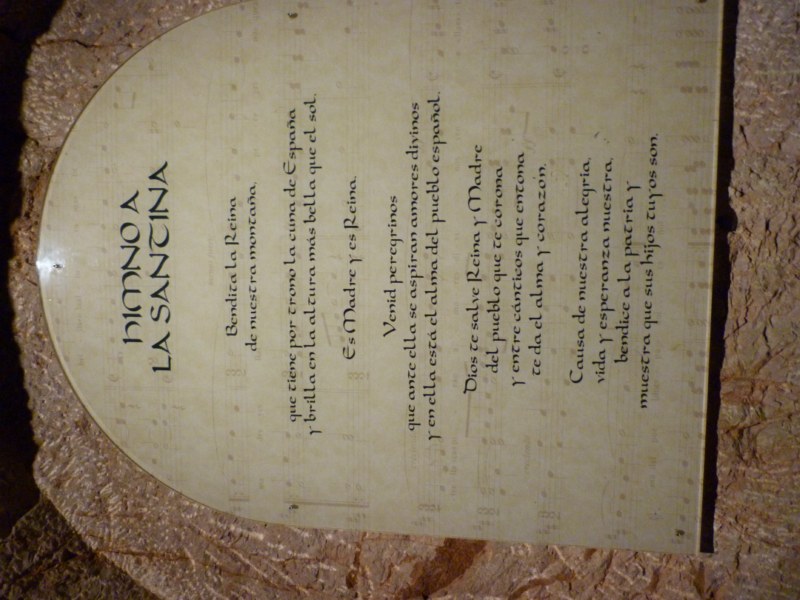 HIMNO A
LA SANTINA
Bendita la Reina
de nuestra montaña,
que tiene por trono la cuna de España
y brilla en la altura más bella que el sol.
Es Madre y es Reina.
Venid peregrinos
que ante ella se aspiran amores divinos
y en ella está el alma del pueblo español.
Dios te salve Reina y Madre
del pueblo que te corona
y entre cánticos que entona
te da el alma y corazón.
Causa de nuestra alegría,
vida y esperanza nuestra,
bendice a la patria y
muestra que sus hijos tuyos son.